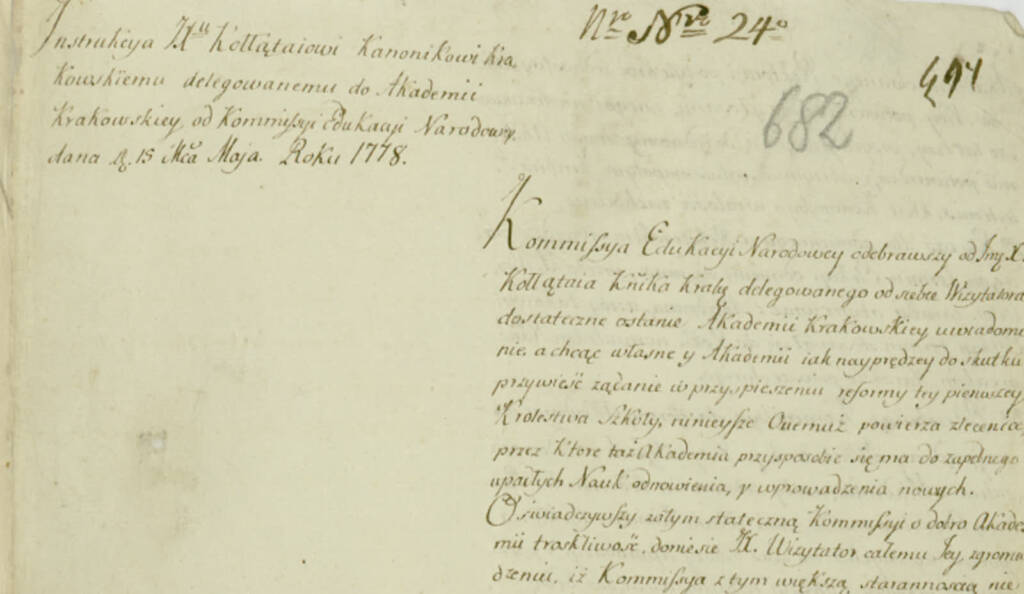 Instrukcya JX.u Kołłątaiowi Kanonikowi Kra
kowskiemu delegowanemu do Akademii
Krakowskiey, od Kommissyi Edukacyi Narodowey,
dana d. 15 Mca Maja. Roku 1778.
Nro Nro 24o
682
Kommissya Edukacyi Narodowey odebrawszy od Jmę X.
Kołłątaia Knika Krakę delegowanego od siebie Wizytatora
dostateczne ostanie Akademii Krakowskiey uwiadomi
nie, a chcąc własne y Akademii iak nayprędzey do skutku
przywieść żądanie w przyspieszeniu reformy tey pierwszey
Krolestwa Szkoły, ninieysze Onemuż powierza zlecenie,
przez ktore taż Akademia przysposobić się ma do zupełnego
upadłych Nauk odnowienia, y wprowadzenia nowych.
Oświadczywszy zatym stateczną Kommissyi o dobro Akade
mii troskliwość, doniesie JX. Wizytator całemu Jey zgroma
dzeniu, iż Kommissya z tym większą starannością nie